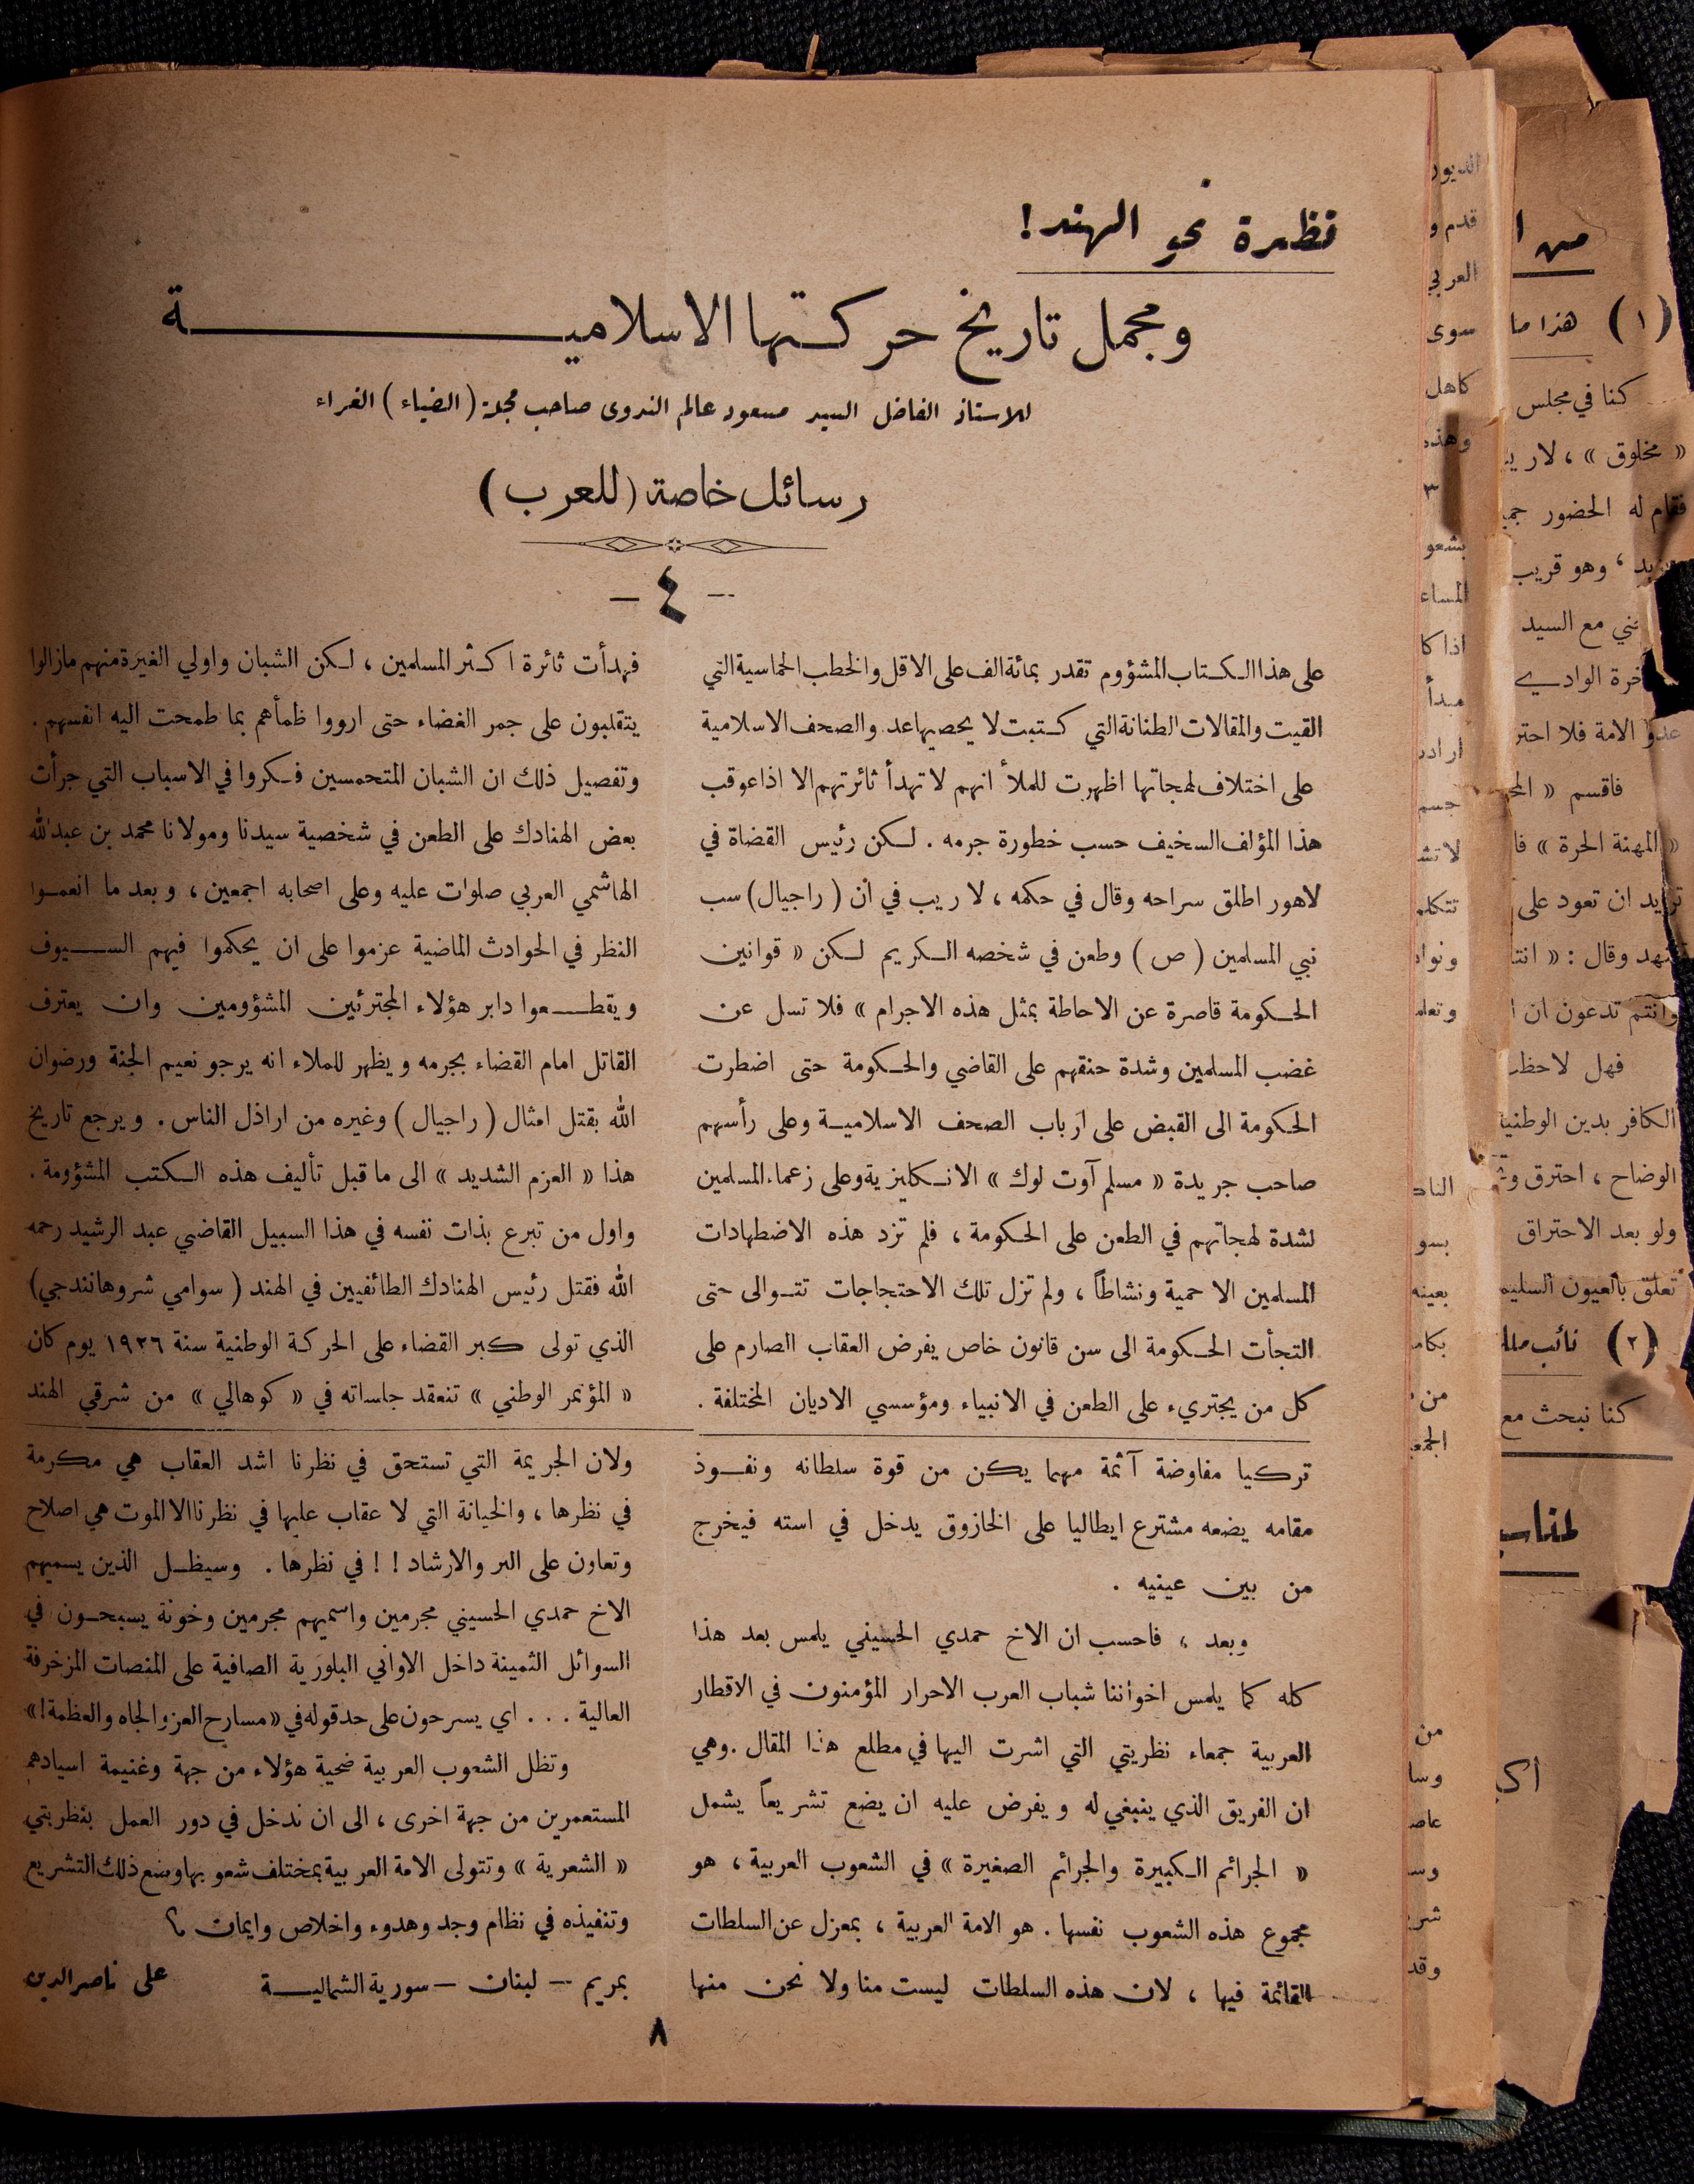 نظرة نحو الهند!
ومجمل تاريخ حركتها الاسلامية
للاستاذ الفاضل السيد مسعود عالم الندوى صاحب مجلة (الضياء) الغراء
رسائل خاصة (للعرب)
— ٤ —
على هذا الكتاب المشؤوم تقدر بمائة الف على الاقل والخطب الحماسية التي
القيت والمقالات الطنانة التي كتبت لا يحصيها عد والصحف الاسلامية
على اختلاف لهجاتها اظهرت للملأ انهم لا تهدأ ثائرتهم الا اذا عوقب
هذا المؤلف السخيف حسب خطورة جرمه . لكن رئيس القضاة في
لاهور اطلق سراحه وقال في حكمه ، لا ريب في أن ( راجيال ) سب
نبي المسلمين ( ص ) وطعن في شخصه الكريم لكن « قوانين
الحكومة قاصرة عن الاحاطة بمثل هذه الاجرام » فلا تسل عن
غضب المسلمين وشدة حنقهم على القاضي والحكومة حتى اضطرت
الحكومة الى القبض على ارباب الصحف الاسلامية وعلى رأسهم
صاحب جريدة « مسلم آوت لوك » الانكليزية وعلى زعماء المسلمين
لشدة لهجاتهم في الطعن على الحكومة ، فلم تزد هذه الاضطهادات
المسلمين الا حمية ونشاطاً ، ولم تزل تلك الاحتجاجات تتوالى حتى
التجأت الحكومة الى سن قانون خاص يفرض العقاب الصارم على
كل من يجتريء على الطعن في الانبياء ومؤسسي الاديان المختلفة .
فهدأت ثائرة اكثر المسلمين ، لكن الشبان واولي الغيرة منهم مازالوا
يتقلبون على جمر الغضاء حتى ارووا ظمأهم بما طمحت اليه انفسهم .
وتفصيل ذلك ان الشبان المتحمسين فكروا في الاسباب التي جرأت
بعض الهنادك على الطعن في شخصية سيدنا ومولانا محمد بن عبدالله
الهاشمي العربي صلوات عليه وعلى اصحابه اجمعين ، وبعد ما انعموا
النظر في الحوادث الماضية عزموا على ان يحكموا فيهم السيوف
ويقطعوا دابر هؤلاء المجترئين المشؤومين وان يعترف
القاتل امام القضاء بجرمه ويظهر للملاء انه يرجو نعيم الجنة ورضوان
الله بقتل امثال ( راجيال ) وغيره من اراذل الناس . ويرجع تاريخ
هذا « العزم الشديد » الى ما قبل تأليف هذه الكتب المشؤومة .
واول من تبرع بذات نفسه في هذا السبيل القاضي عبد الرشيد رحمه
الله فقتل رئيس الهنادك الطائفيين في الهند ( سوامي شروهانندجي)
الذي تولى كبر القضاء على الحركة الوطنية سنة ١٩٢٦ يوم كان
« المؤتمر الوطني » تنعقد جلساته في « كوهالي » من شرقي الهند
تركيا مفاوضة آثمة مهما يكن من قوة سلطانه ونفوذ
مقامه يضعه مشترع ايطاليا على الخازوق يدخل في استه فيخرج
من بين عينيه .
وبعد ، فاحسب ان الاخ حمدي الحسيني يلمس بعد هذا
كله كما يلمس اخواننا شباب العرب الاحرار المؤمنون في الاقطار
العربية جمعاء نظريتي التي اشرت اليها في مطلع هذا المقال .وهي
ان الفريق الذي ينبغي له ويفرض عليه ان يضع تشريعاً يشمل
« الجرائم الكبيرة والجرائم الصغيرة » في الشعوب العربية ، هو
مجموع هذه الشعوب نفسها . هو الامة العربية ، بمعزل عن السلطات
القائمة فيها ، لان هذه السلطات ليست منا ولا نحن منها
ولان الجريمة التي تستحق في نظرنا اشد العقاب هي مكرمة
في نظرها ، والخيانة التي لا عقاب عليها في نظرنا الا الموت هي اصلاح
وتعاون على البر والارشاد ! ! في نظرها . وسيظل الذين يسميهم
الاخ حمدي الحسيني مجرمين واسميهم مجرمين وخونة يسبحون في
السوائل الثمينة داخل الاواني البلورية الصافية على المنصات المزخرفة
العالية . . . اي يسرحون على حد قوله في «مسارح العز والجاه والعظمة!»
وتظل الشعوب العربية ضحية هؤلاء من جهة وغنيمة اسيادهم
المستعمرين من جهة اخرى ، الى ان ندخل في دور العمل بنظريتي
« الشعرية » وتتولى الامة العربية بمختلف شعوبها وضع ذلك التشريع
وتنفيذه في نظام وجد وهدوء واخلاص وايمان ؟
بمريم — لبنان — سورية الشمالية على ناصر الدين
٨
قدم و
العربي
سوى
كاهل
وهذه
٣
(١) هذا ما
كنا في مجلس
« مخلوق » ، لا ريب
فقام له الحضور
، وهو قريب
مع السيد
عدو الامة فلا
فاقسم «
« المهنة الحرة »
تريد ان تعود على
وقال : «
وانتم تدعون ان
فهل
الكافر بدين الوطنية
الوضاح ، احترق
ولو بعد الاحتراق
تعلق بالعيون
(٢) نائب
كنا نبحث مع